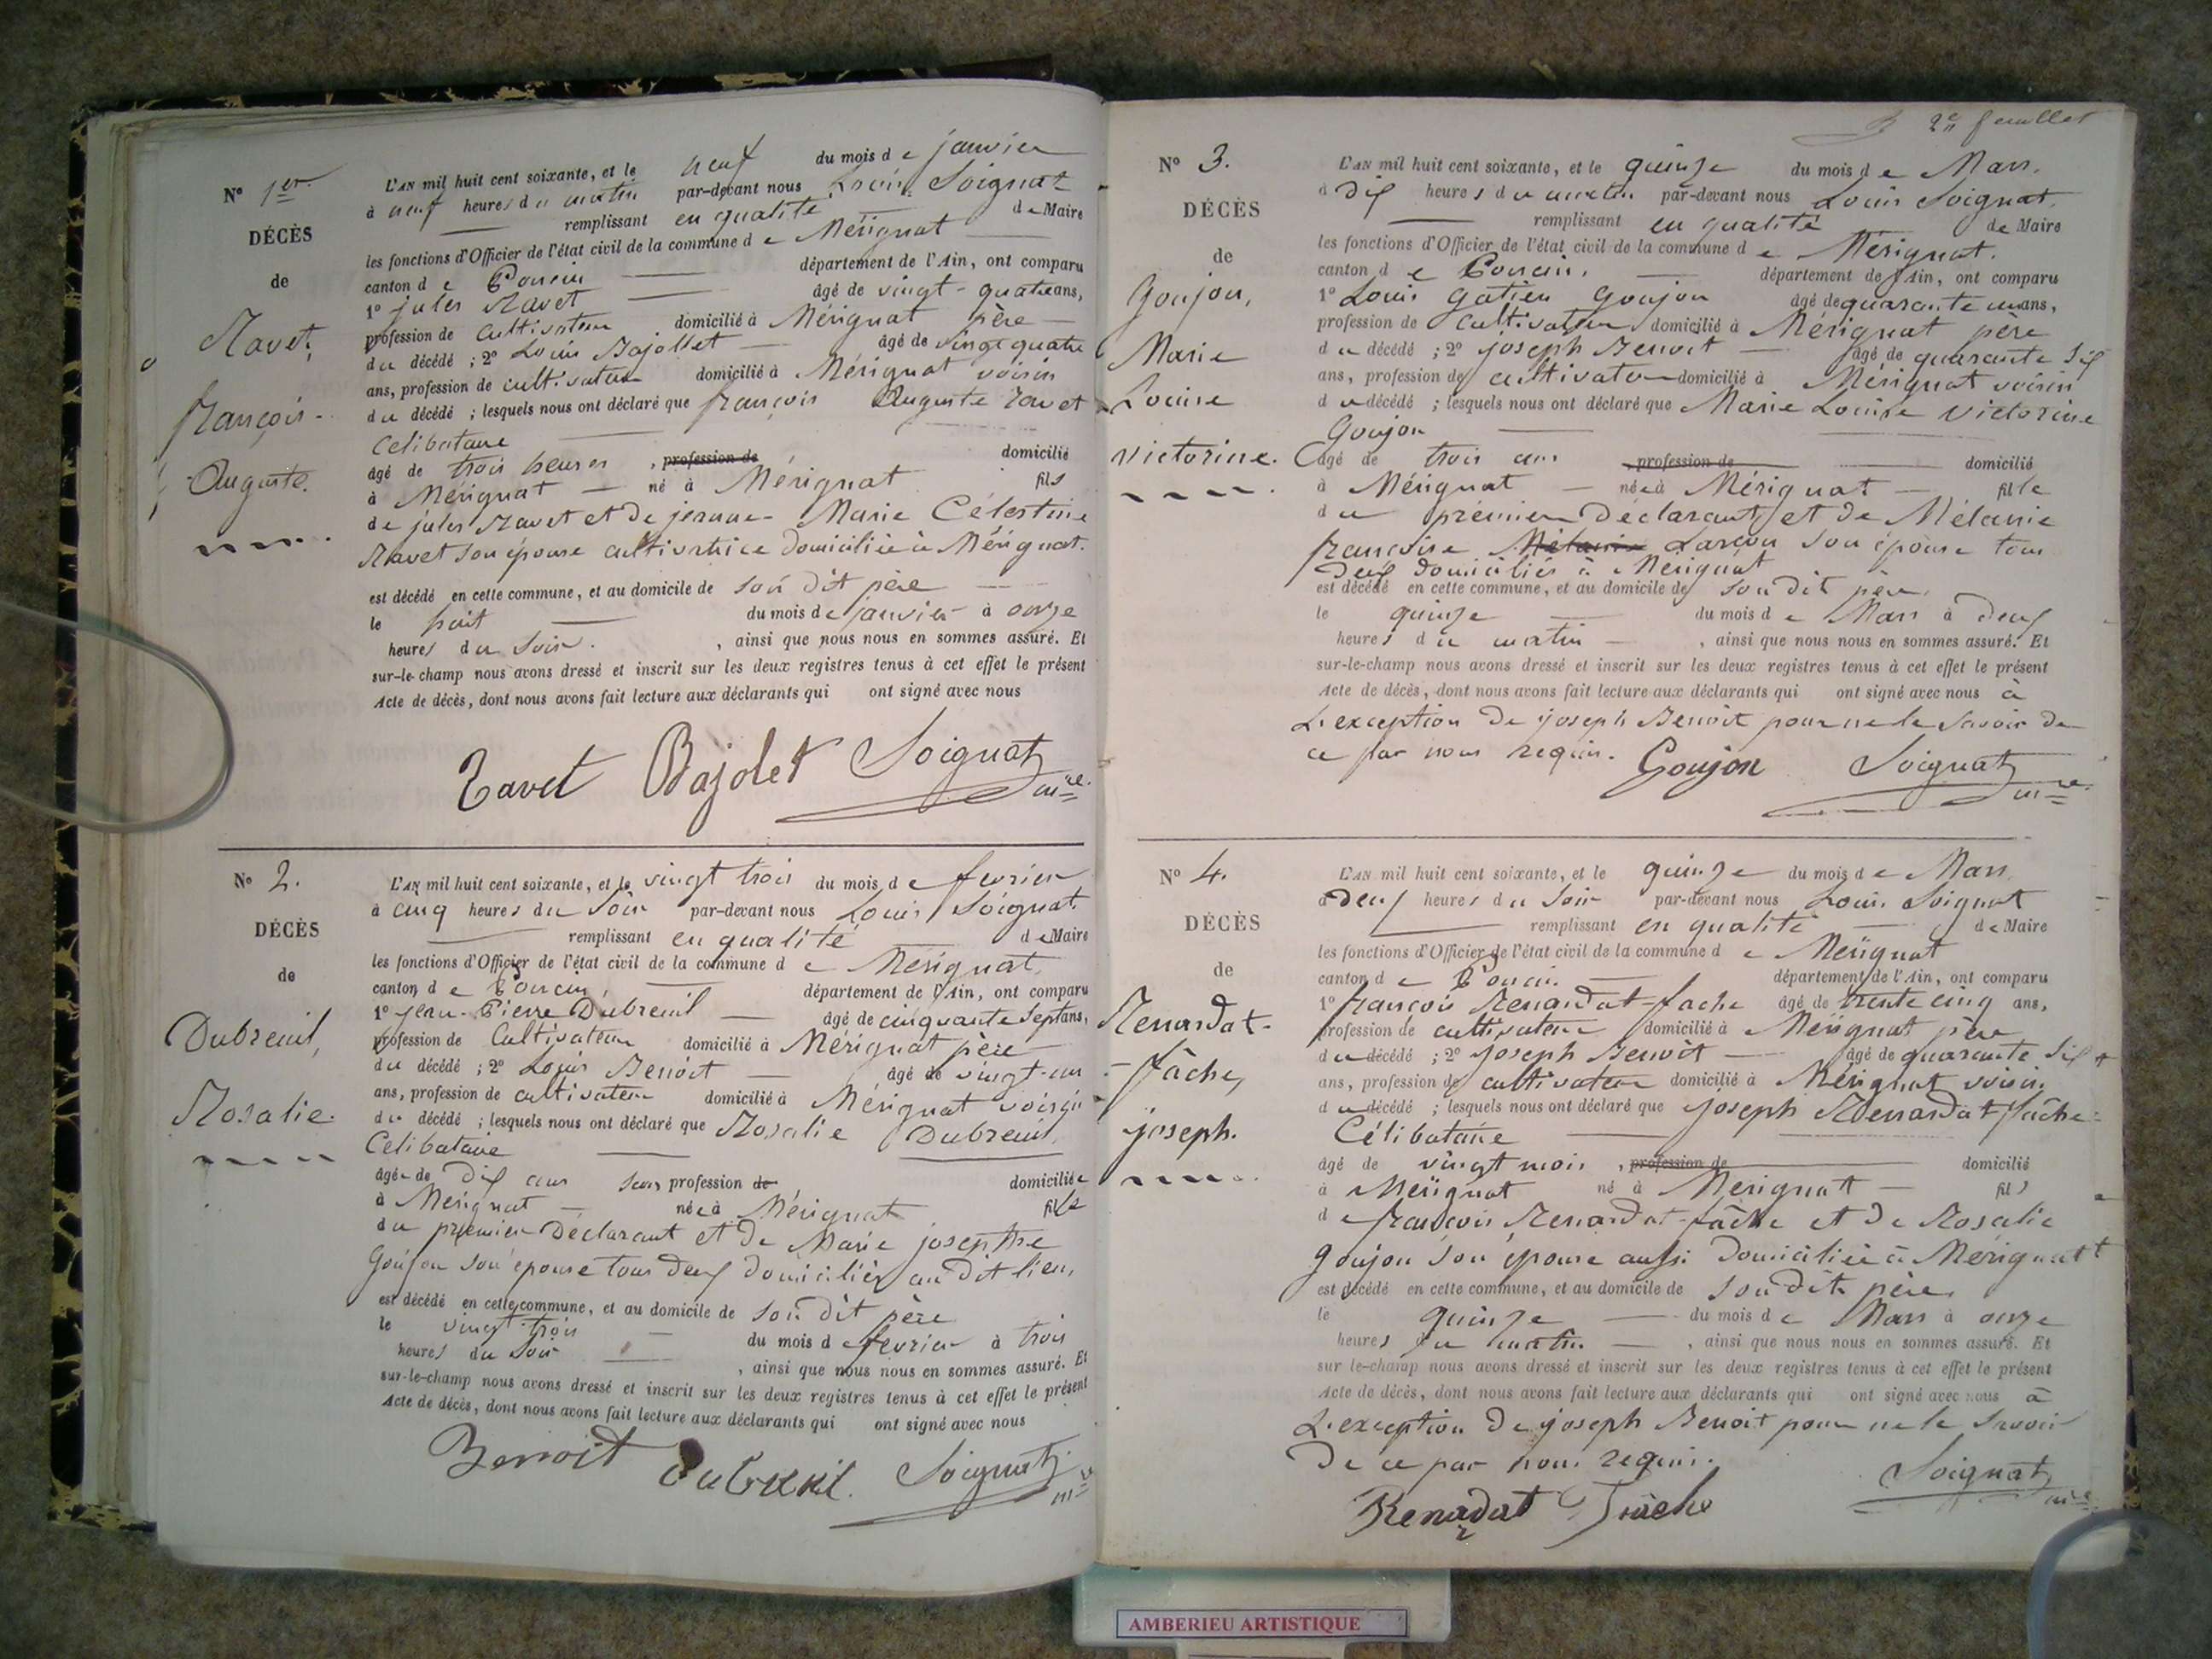 N° 1er
DÉCÈS
de
Ravet,
françois-
Auguste.
L'AN mil huit cent soixante, et le neuf du mois de janvier
à neuf heures du matin par-devant nous Louis Soignat
remplissant en qualité de Maire
les fonctions d'Officier de l'état civil de la commune de Mérignat
canton de Poncin département de l'Ain, ont comparu
1° jules Ravet âgé de vingt-quatre ans,
profession de cultivateur domicilié à Mérignat père
du décédé ; 2° Louis Bajollet âgé de vingt quatre
ans, profession de cultivateur domicilié à Mérignat voisin
du décédé ; lesquels nous ont déclaré que françois Auguste ravet
Celibataire
âgé de trois heures , profession de domicilié
à Mérignat né à Mérignat fils
de jules Ravet et de jeanne-Marie Célestine
Ravet son épouse cultivatrice domiciliée à Mérignat.
est décédé en cette commune, et au domicile de son dit père
le huit du mois de janvier à onze
heures du soir. , ainsi que nous nous en sommes assuré. Et
sur-le-champ nous avons dressé et inscrit sur les deux registres tenus à cet effet le présent
Acte de décès, dont nous avons fait lecture aux déclarants qui ont signé avec nous
Ravet Bajolet Soignat mre
N° 2.
DÉCÈS
de
Dubreuil,
Rosalie.
L'AN mil huit cent soixante, et le vingt trois du mois de fevrier
à cinq heures du soir par-devant nous Louis Soignat.
remplissant en qualité de Maire
les fonctions d'Officier de l'état civil de la commune de Mérignat,
canton de Poncin, département de l'Ain, ont comparu
1° jean-Pierre Dubreuil âgé de cinquante sept ans,
profession de Cultivateur domicilié à Mérignat père
du décédé ; 2° Louis Benoit âgé de vingt-un
ans, profession de cultivateur domicilié à Mérignat voisin
du décédé ; lesquels nous ont déclaré que Rosalie Dubreuil
Celibataire
âgée de dix ans sans profession de domiciliée
à Mérignat née à Mérignat fille
du premier déclarant et de Marie josephte
Goujon son épouse tous deux domiciliés au dit lieu,
est décédé en cette commune, et au domicile de son dit père
le vingt-trois du mois de fevrier à trois
heures du soir , ainsi que nous nous en sommes assuré. Et
sur-le-champ nous avons dressé et inscrit sur les deux registres tenus à cet effet le présent
Acte de décès, dont nous avons fait lecture aux déclarants qui ont signé avec nous
Benoit Dubreuil. Soignat mre
2e feuillet
N° 3.
DÉCÈS
de
Goujon,
Marie
Louise
victorine.
L'AN mil huit cent soixante, et le quinze du mois de Mars.
à dix heures du matin par-devant nous Louis Soignat.
remplissant en qualité de Maire
les fonctions d'Officier de l'état civil de la commune de Mérignat.
canton de Poncin. département de l'Ain, ont comparu
1° Louis Gatien Goujon âgé de quarante un ans,
profession de cultivateur domicilié à Mérignat père
du décédé ; 2° joseph Benoit âgé de quarante six
ans, profession de cultivateur domicilié à Mérignat voisin
du décédé ; lesquels nous ont déclaré que Marie Louise victorine
Goujon
âgé de trois ans , profession de domicilié
à Mérignat née à Mérignat fille
du premier déclarant et de Mélanie
françoise Mélanie Larçon son épouse tous
deux domiciliés à Mérignat
est décédé en cette commune, et au domicile de son dit père.
le quinze du mois de Mars à deux
heures du matin , ainsi que nous nous en sommes assuré. Et
sur-le-champ nous avons dressé et inscrit sur les deux registres tenus à cet effet le présent
Acte de décès, dont nous avons fait lecture aux déclarants qui ont signé avec nous à
L'exception de joseph Benoit pour ne le savoir de
ce par nous requis. Goujon Soignat mre
N° 4.
DÉCÈS
de
Renardat-
-fâche,
joseph.
L'AN mil huit cent soixante, et le quinze du mois de Mars
à deux heures du soir par-devant nous Louis Soignat
remplissant en qualité de Maire
les fonctions d'Officier de l'état civil de la commune de Mérignat
canton de Poncin. département de l'Ain, ont comparu
1° françois Renardat-fache âgé de trente cinq ans,
profession de cultivateur domicilié à Mérignat père
du décédé ; 2° joseph Benoit âgé de quarante six
ans, profession de cultivateur domicilié à Mérignat voisin.
du décédé ; lesquels nous ont déclaré que joseph Renardat-fâche
Célibataire
âgé de vingt mois , profession de domicilié
à Mérignat né à Mérignat fils
de françois Renardat-fâche et de Rosalie
goujon son épouse aussi domiciliée à Mérignat
est décédé en cette commune, et au domicile de son dit père,
le quinze du mois de Mars à onze
heures du matin , ainsi que nous nous en sommes assuré. Et
sur le-champ nous avons dressé et inscrit sur les deux registres tenus à cet effet le présent
Acte de décès, dont nous avons fait lecture aux déclarants qui ont signé avec nous à
L'exception de joseph Benoit pour ne le savoir
de ce par nous requis. Soignat mre
Renardat Frâche
AMBERIEU ARTISTIQUE